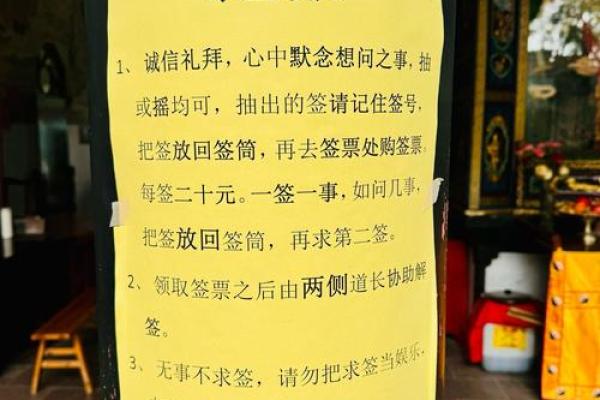 1、诚信礼拜，心中默念想问之事，抽
或摇均可，抽出的签请记住签号，
把签放回签筒，再去签票处购签票。
每签二十元。一签一事，如问几事，
把签放回签筒，再求第二签。
2、领取签票之后由两侧道长协助解
签。
3、无事不求签，请勿把求签当娱乐，